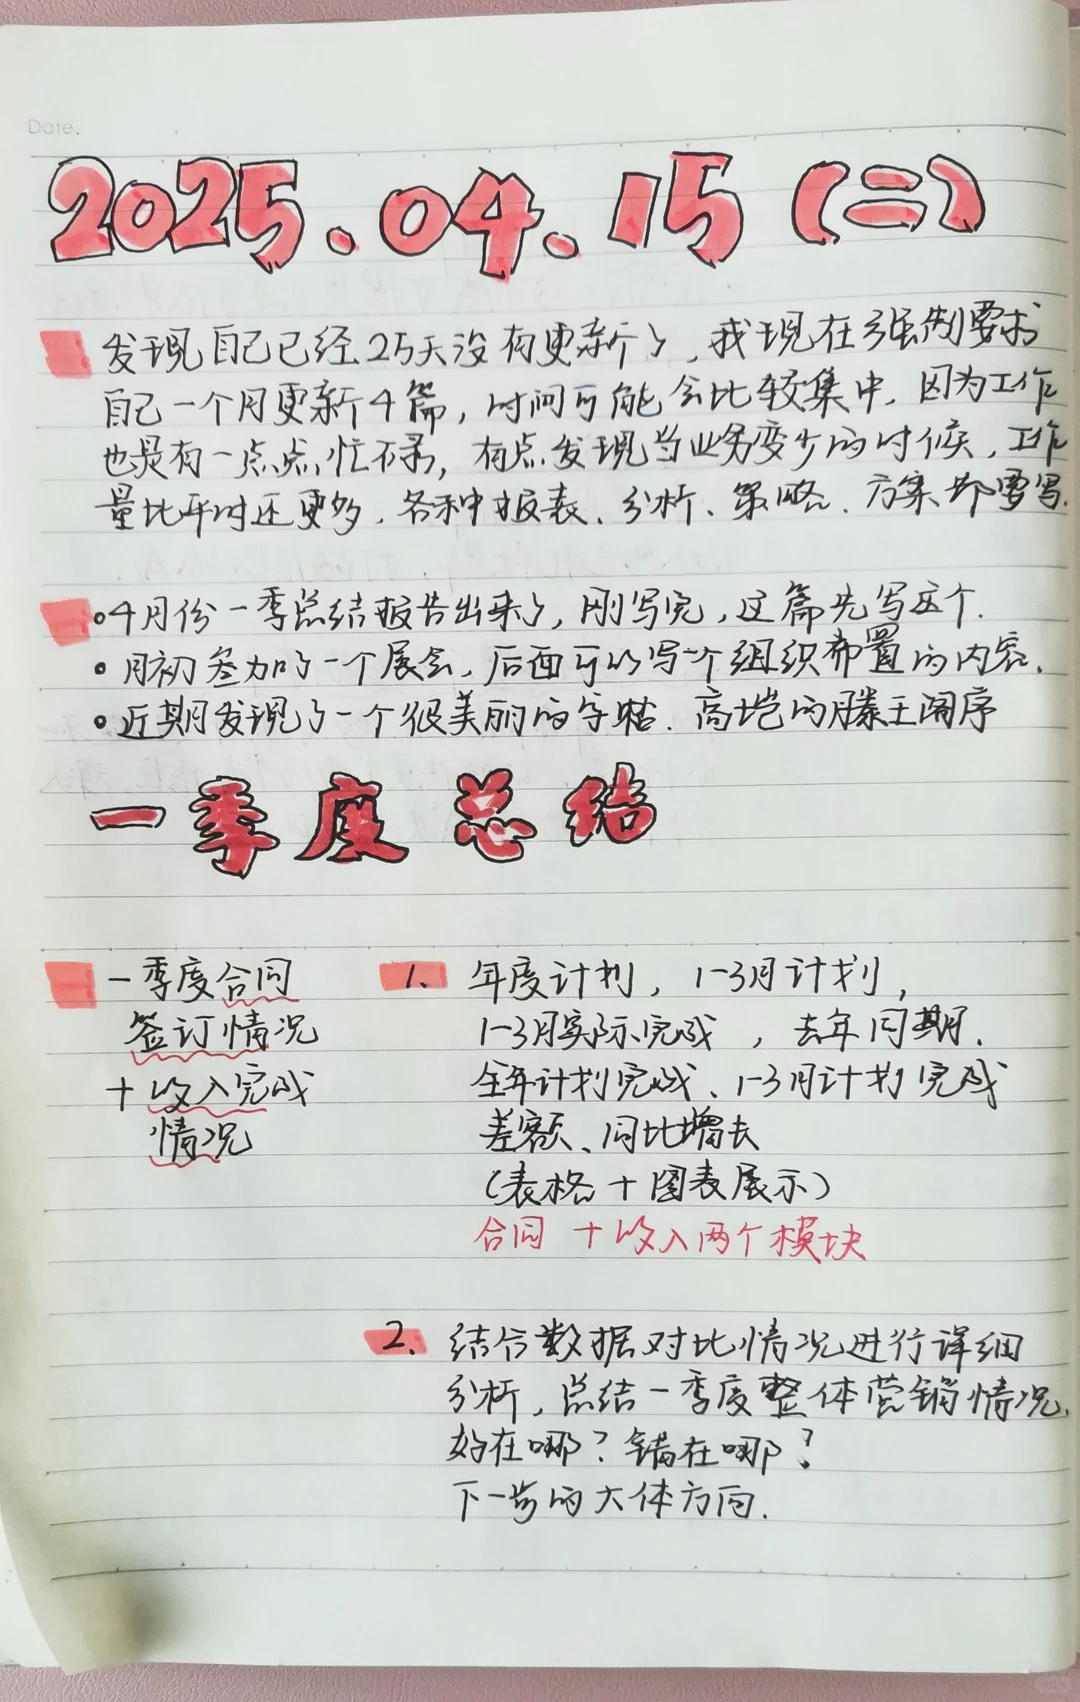 Date.
2025.04.15(二)
发现自己已经25天没有更新了,我现在强制要求
自己一个月更新4篇,时间可能会比较集中.因为工作
也是有一点点忙碌,有点发现当业务变少的时候,工作
量比平时还更多.各种报表、分析、策略、方案都要写.
•4月份一季总结报告出来了,刚写完,这篇先写这个.
•月初参加了一个展会,后面可以写一个组织布置的内容.
•近期发现了一个很美丽的字帖.高垲的滕王阁序
一季度总结
一季度合同
签订情况
+收入完成
情况
1. 年度计划,1-3月计划,
1-3月实际完成,去年同期.
全年计划完成、1-3月计划完成
差额、同比增长
(表格+图表展示)
合同+收入两个模块
2. 结合数据对比情况进行详细
分析,总结一季度整体营销情况.
好在哪?错在哪?
下一步的大体方向.